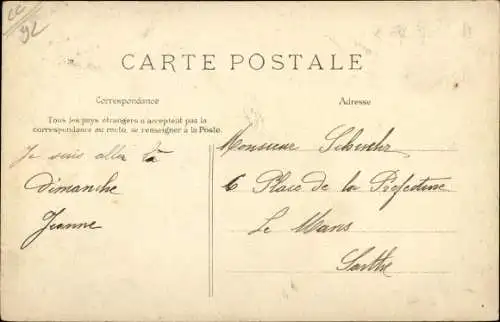 CC
92
CARTE POSTALE
Correspondance
Tous les pays étrangers n'acceptent pas la
correspondance au recto, se renseigner à la Poste.
Je suis allée là
dimanche
Jeanne
Adresse
Monsieur
6 Place de la Préfecture
Le Mans
Sarthe